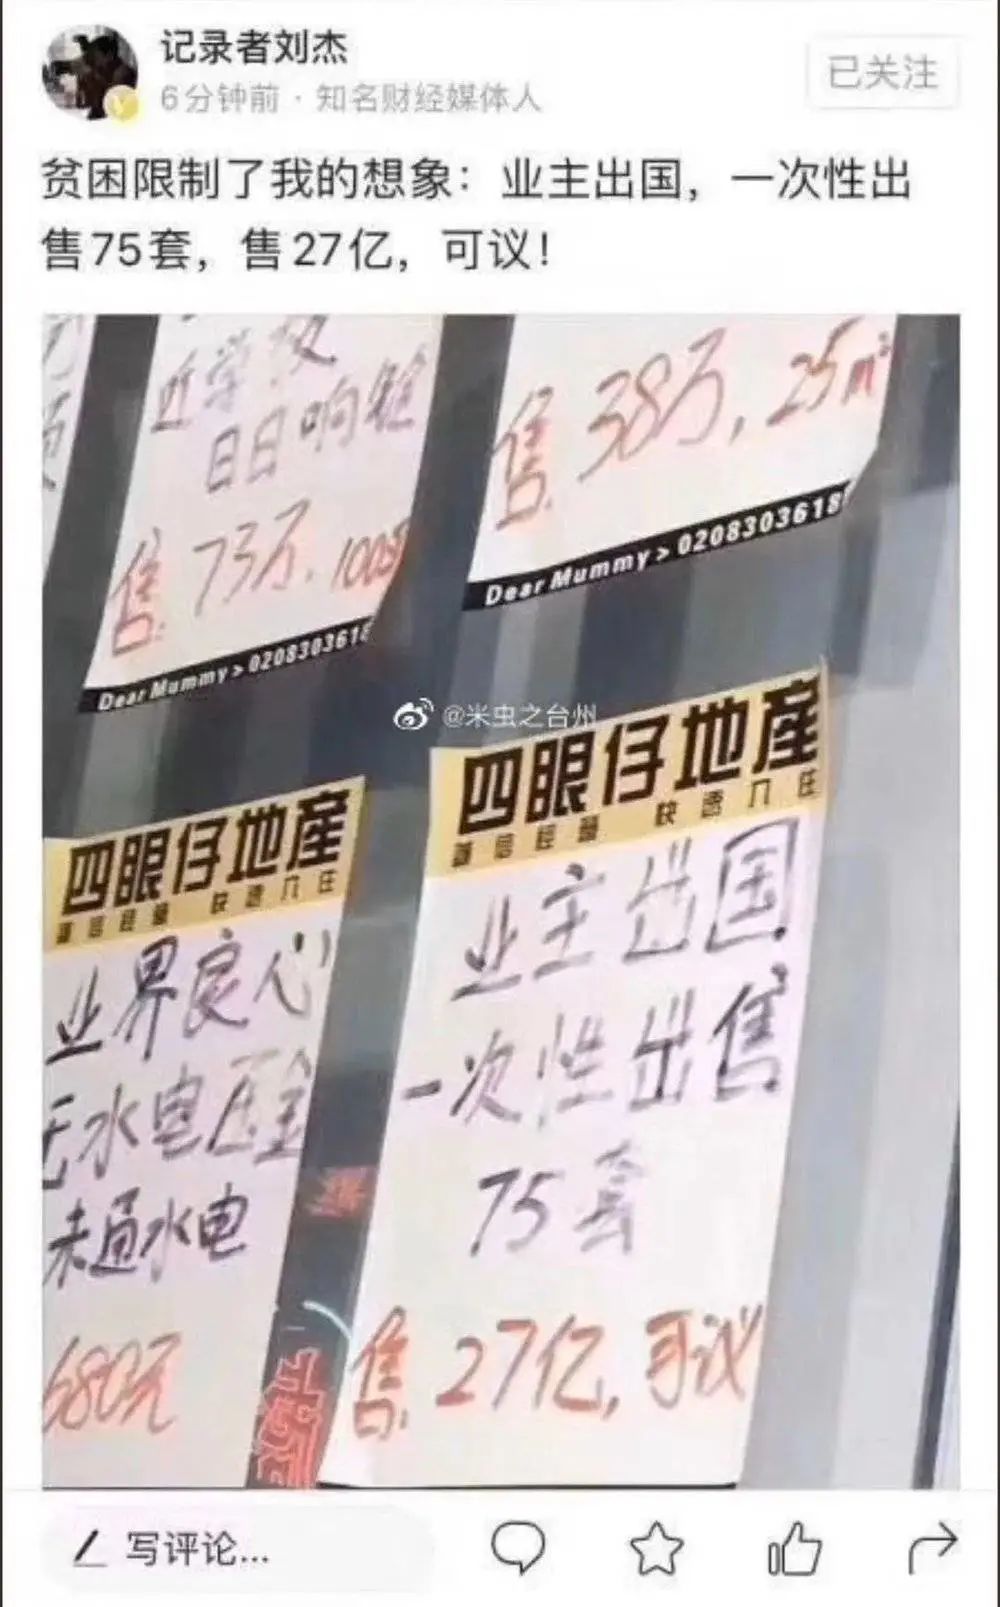 记录者刘杰
6分钟前 · 知名财经媒体人
已关注
贫困限制了我的想象：业主出国，一次性出
售75套，售27亿，可议！
近学校
日日响铃
售：73万，100
Dear Mummy > 0208303618
售：38万，25㎡
Dear Mummy > 0208303618
@米虫之台州
四眼仔地産
业界良心
无水电压金
未通水电
680元
四眼仔地産
业主出国
一次性出售
75套
售：27亿，可议
写评论...